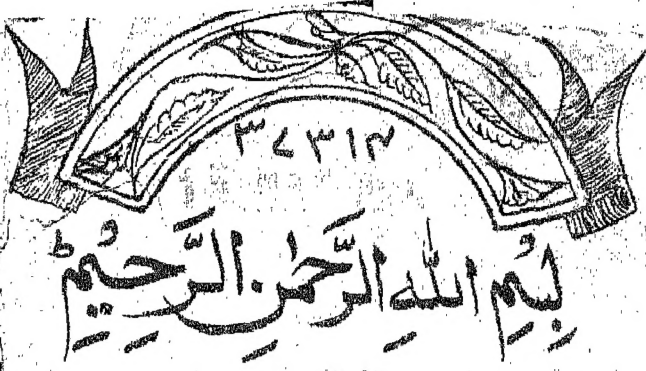 ۳۷۳۱۴
بِسْمِ اللهِ الرَّحْمٰنِ الرَّحِيْمِ